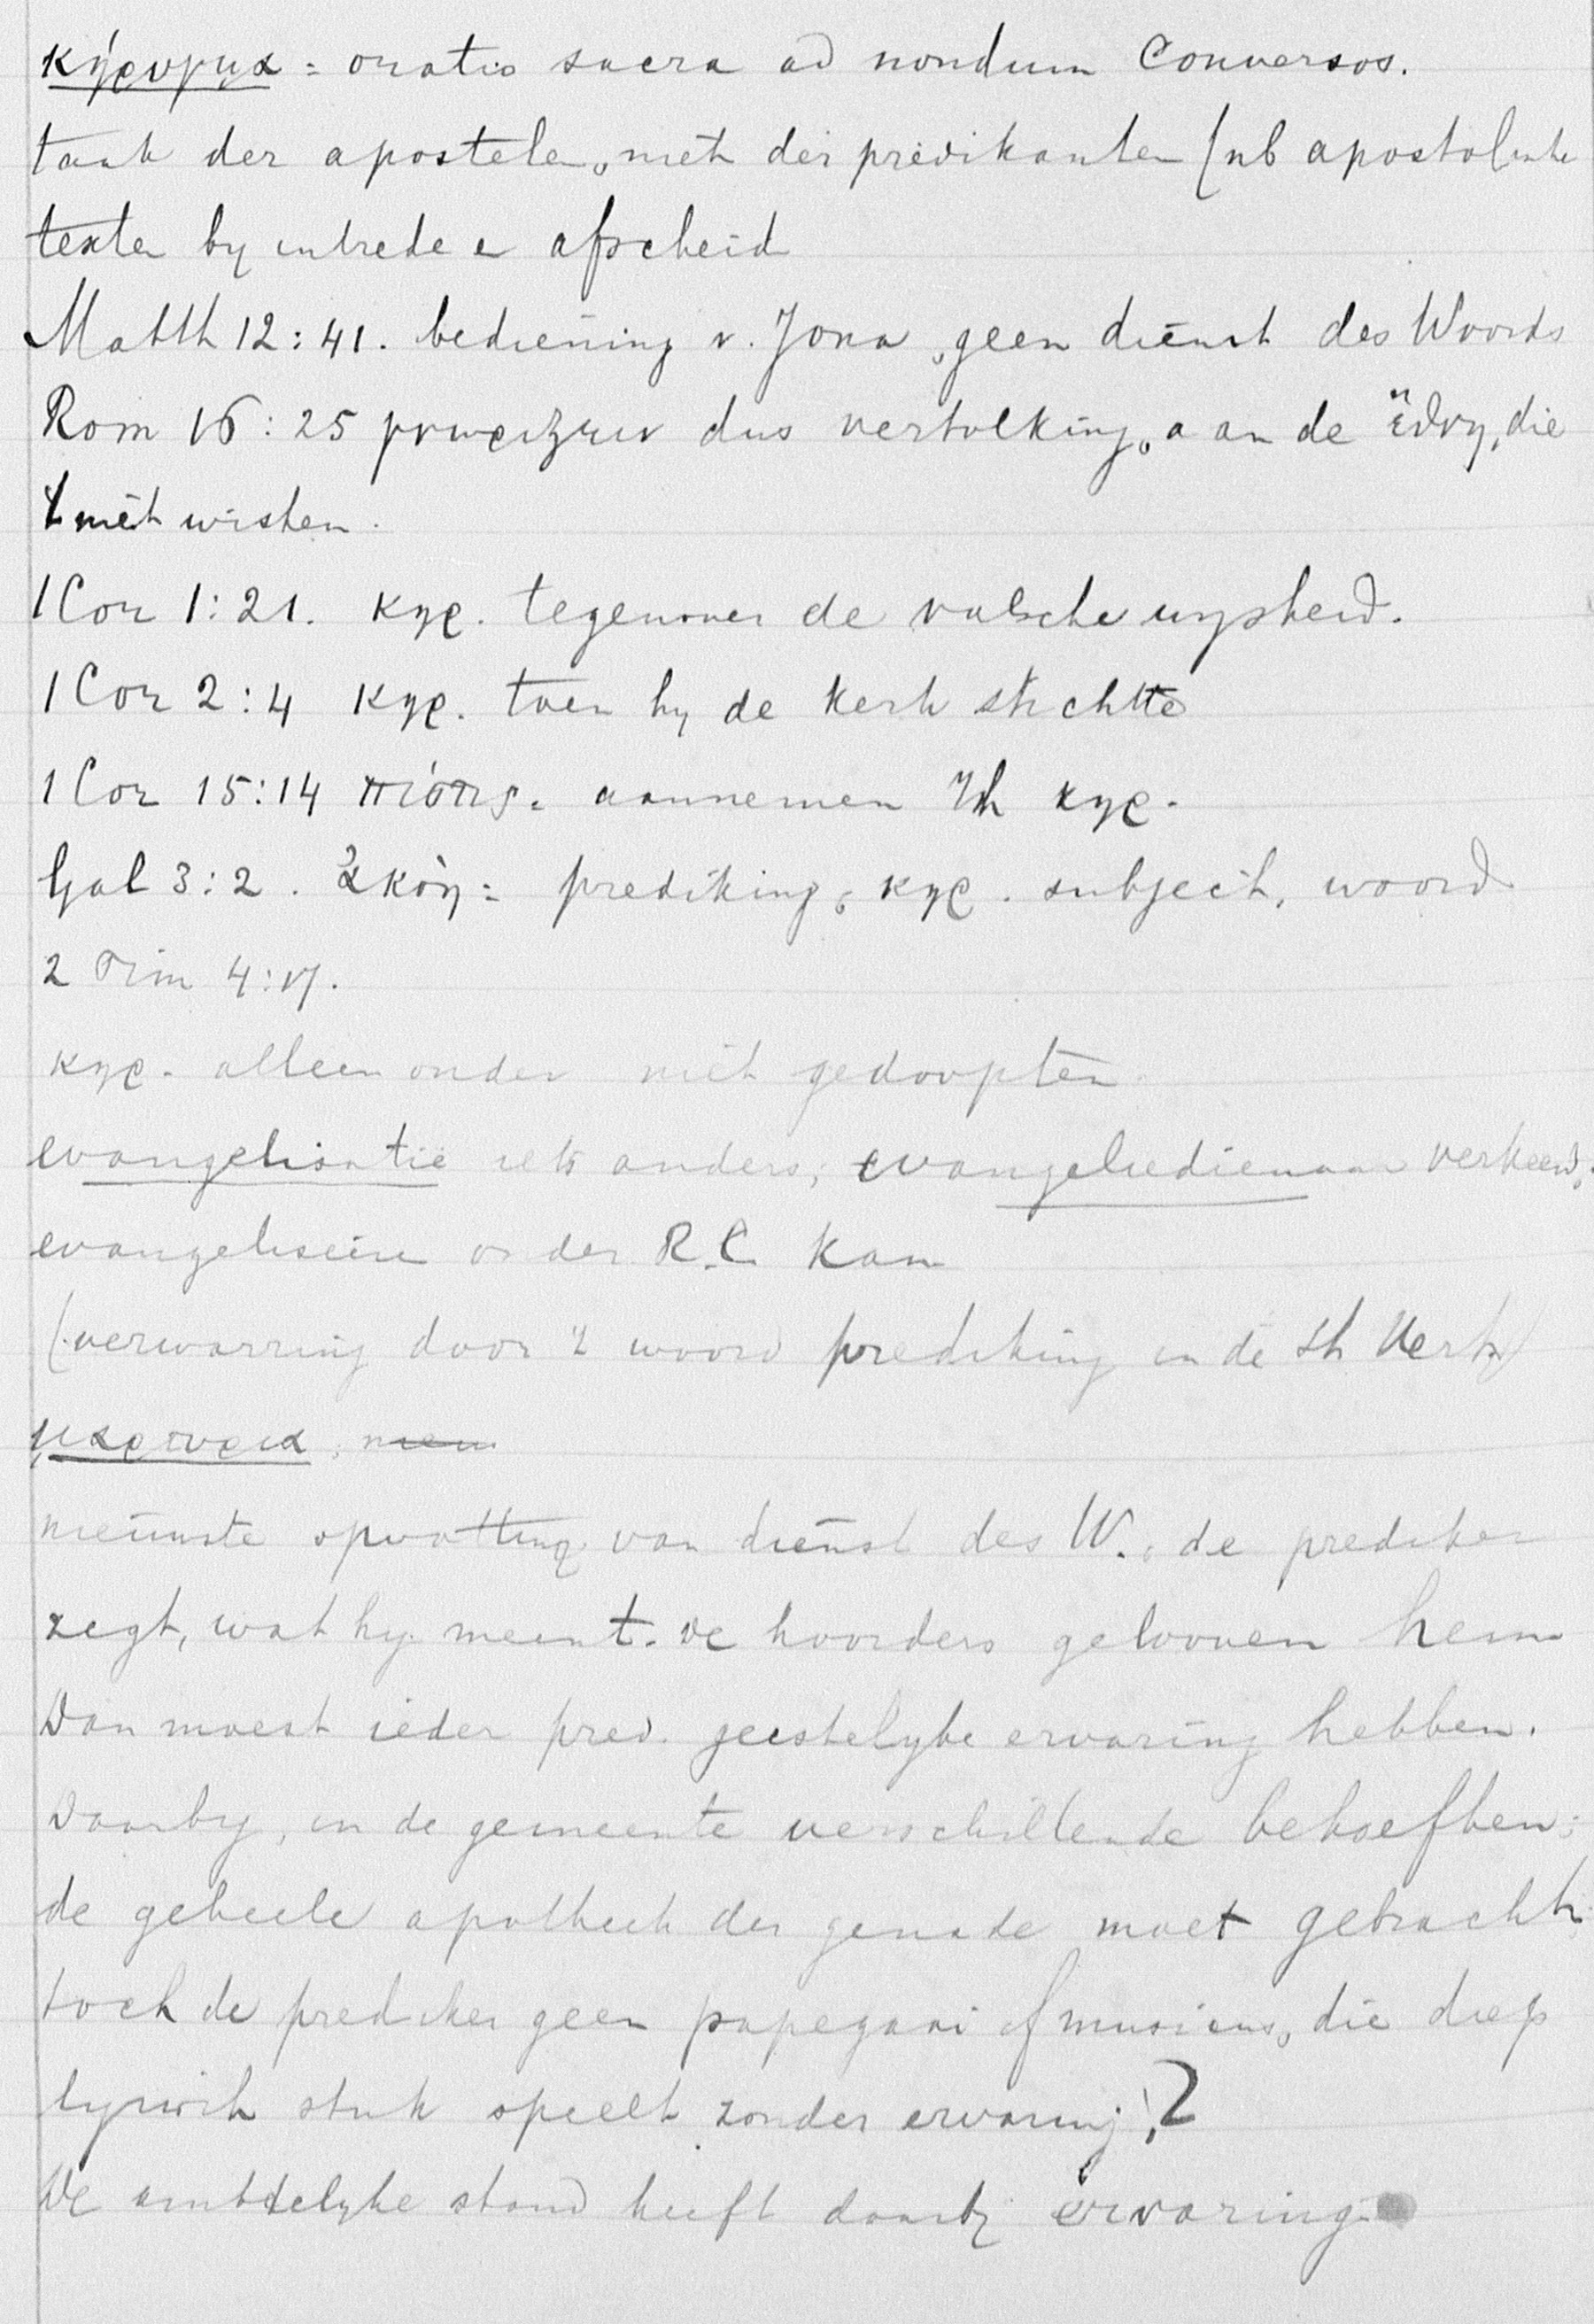 κήρυγμα = oratio sacra ad nondum conversos.
taak der apostelen, niet der predikanten (nb apostolische
texten by intrede e afscheid
Matth 12:41. bediening v. Jona, geen dienst des Woords
Rom 16:25 γνωρίζειν dus vertolking, aan de ἔθνη, die
't niet wisten.
1 Cor 1:21. κηρ. tegenover de valsche wysheid.
1 Cor 2:4 κηρ. toen hy de kerk stichtte
1 Cor 15:14 πίστις = aannemen κηρ.
Gal 3:2. ἀκοή = prediking, κηρ. subject, woord
2 Tim 4:17.
κηρ. alleen onder niet gedoopten.
evangelisatie iets anders; evangeliedienaar verkeerd,
evangeliseeren onder R.C. kan
(verwarring door 't woord prediking in de kerk)
μαρτυρια,
nieuwste opvatting van dienst des W., de prediker
zegt, wat hy meent. de hoorders gelooven hem
Dan moest ieder pred. geestelyke ervaring hebben.
Daarby, in de gemeente verschillende behoeften;
de geheele apotheek der genade moet gebracht.
toch de prediker geen papegaai of musicus, die diep
lyrisch stuk speelt zonder ervaring!?
De ambtelyke stand heeft daarby ervaring.